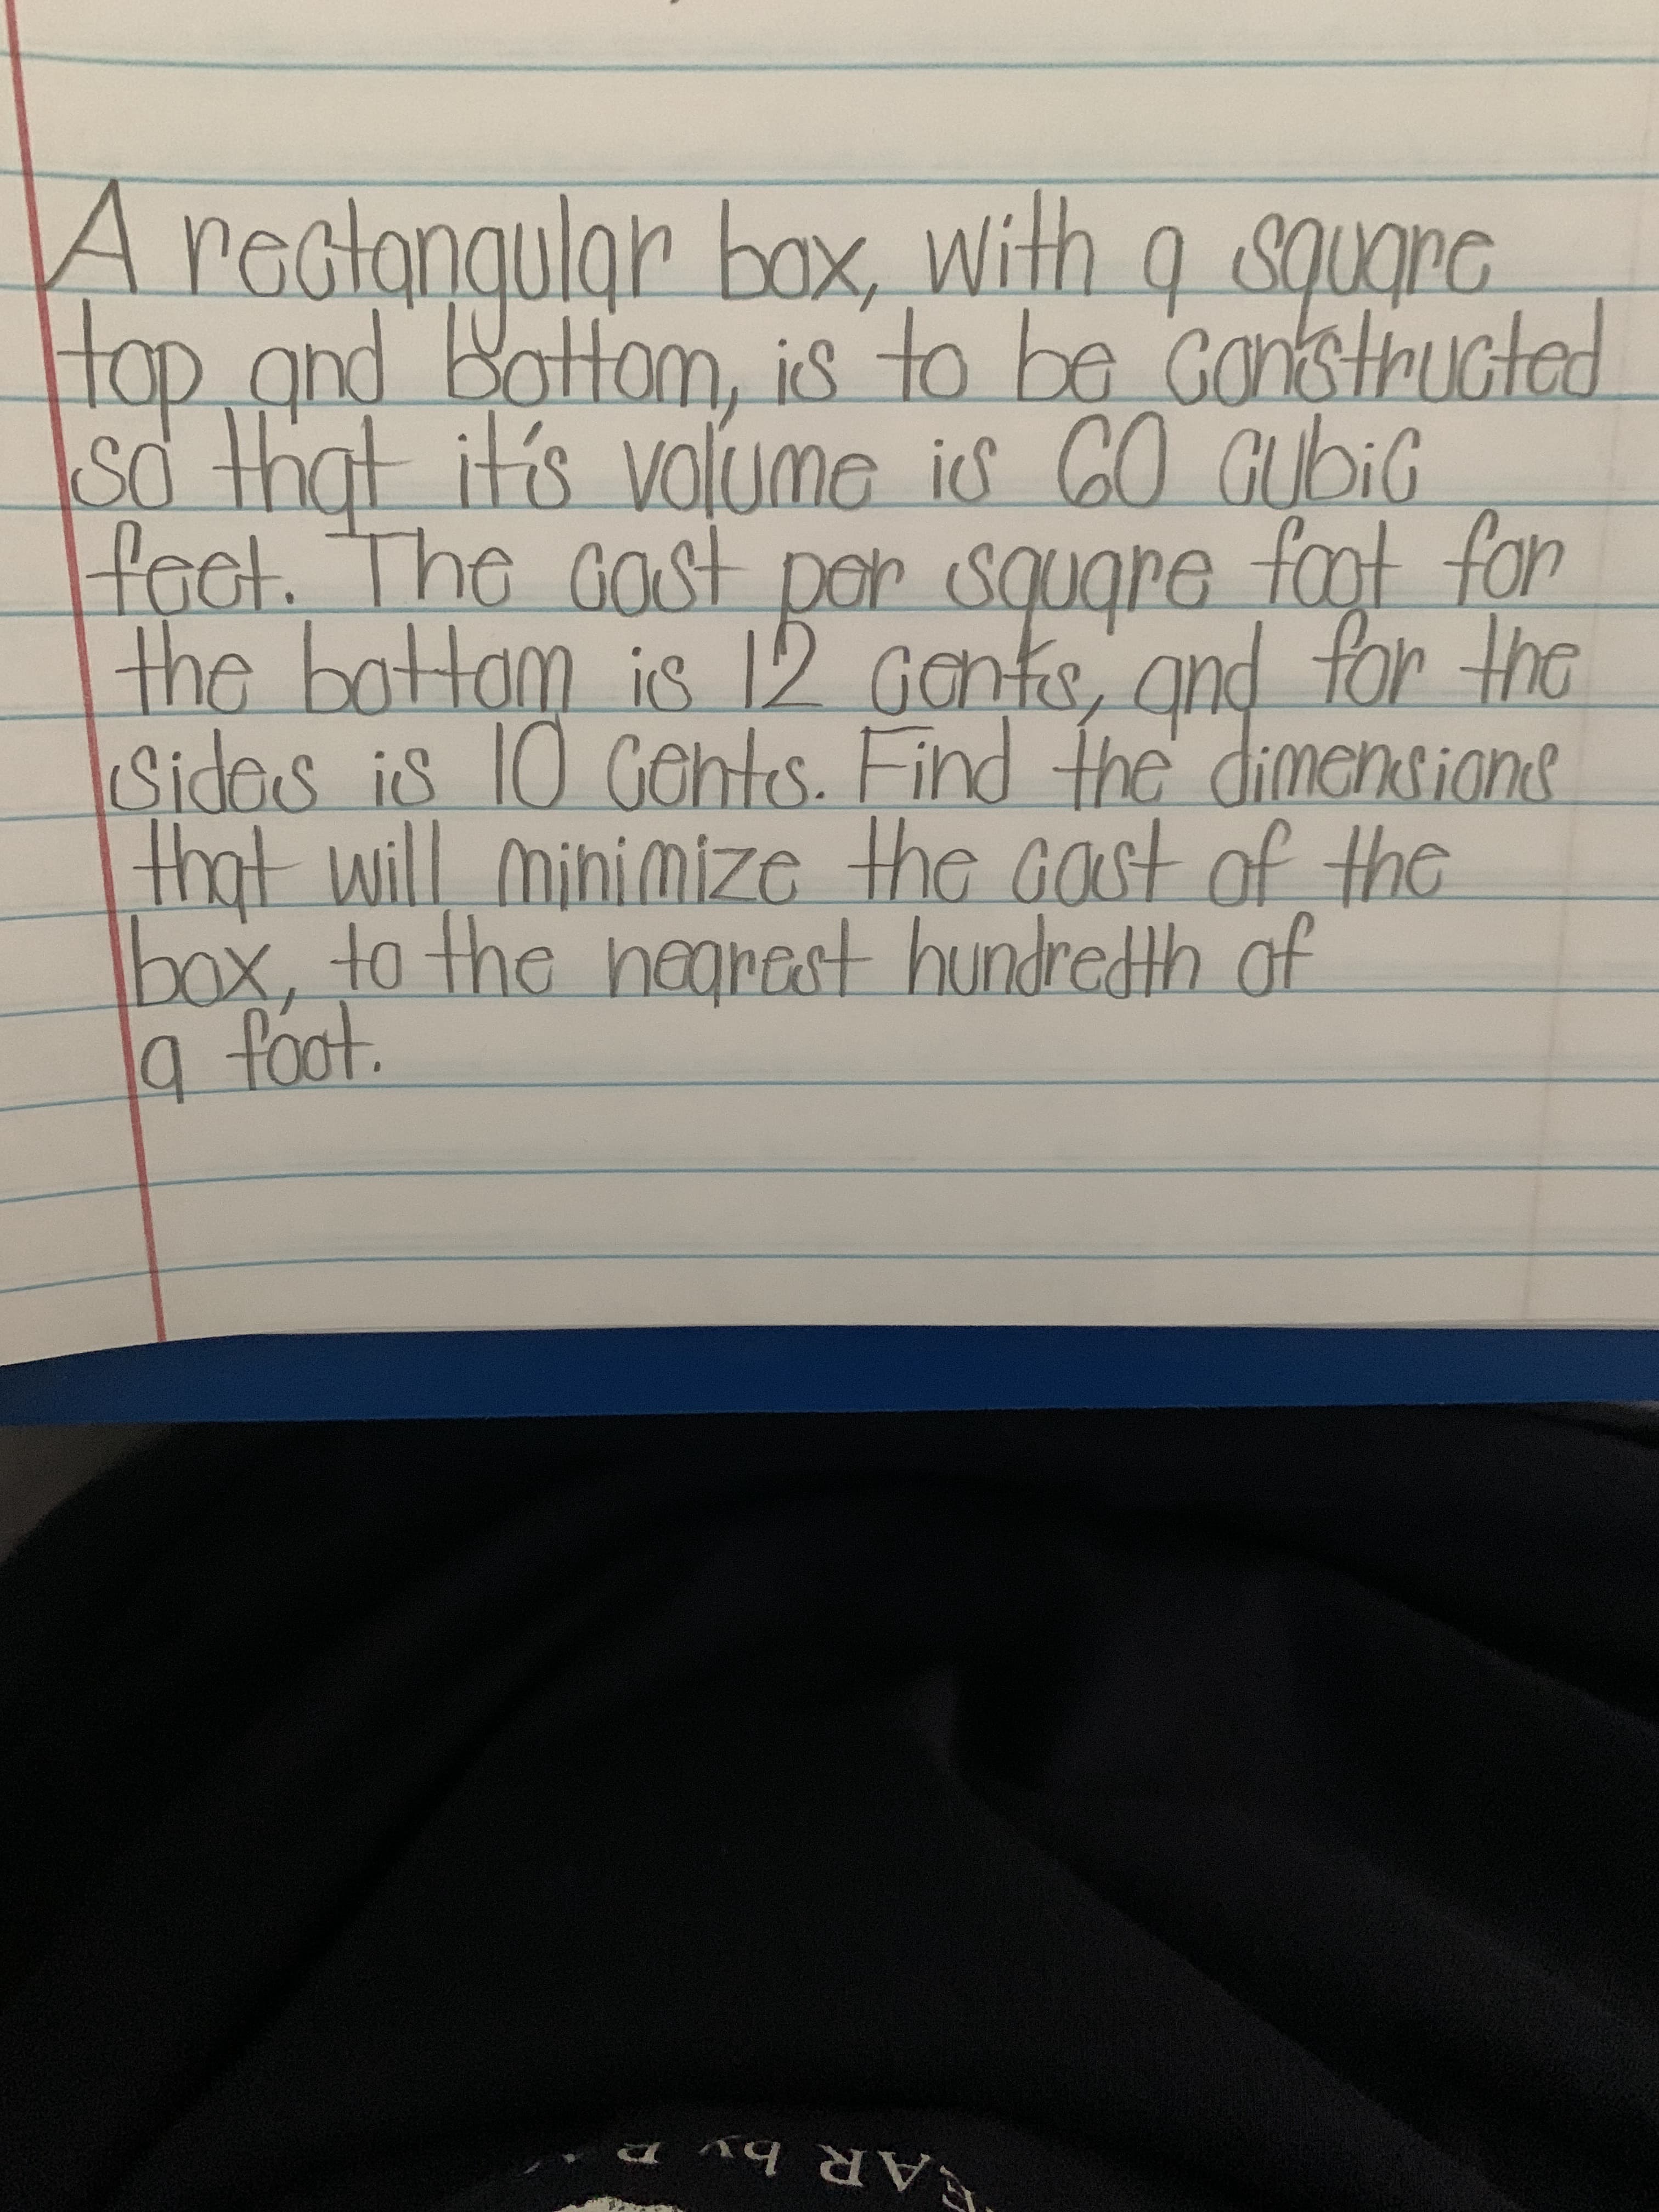 A rectangular box, with a square
top and bottom, is to be constructed
so that it's volume is 60 cubic
feet. The cost per square foot for
the bottom is 12 cents, and for the
sides is 10 cents. Find the dimensions
that will minimize the cost of the
box, to the nearest hundredth of
a foot.